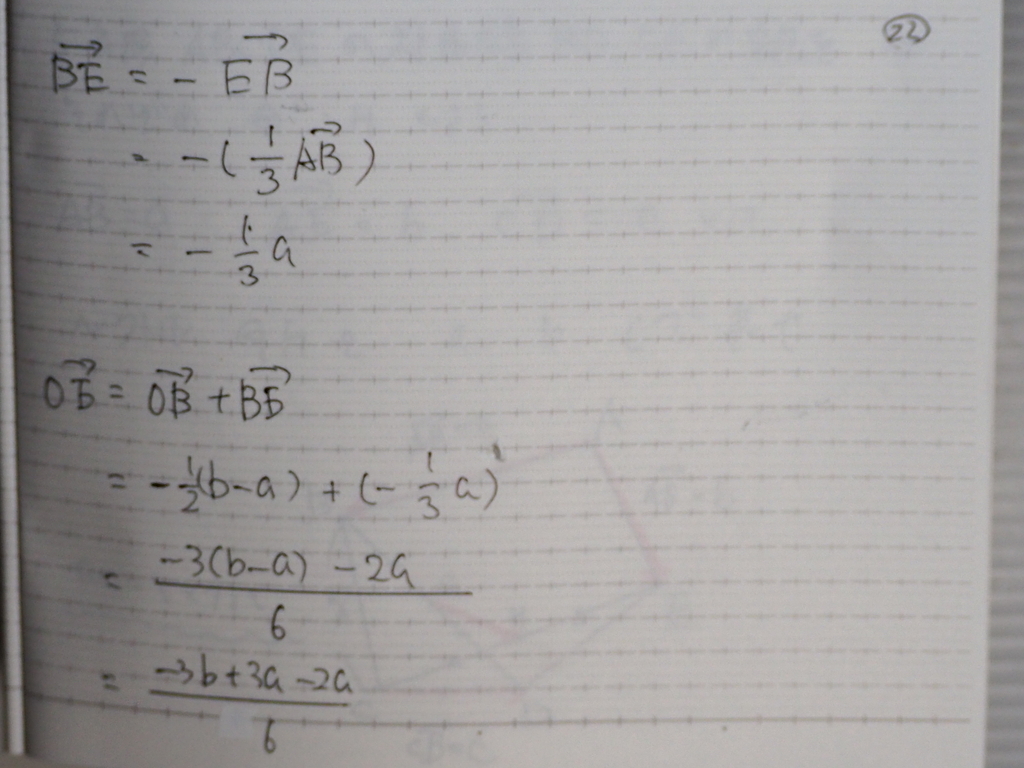 22
BE→ = - EB→
= -(1/3 AB→)
= - 1/3 a
OE→ = OB→ + BE→
= -1/2(b-a) + (- 1/3 a)
= (-3(b-a) - 2a)/6
= (-3b+3a-2a)/6